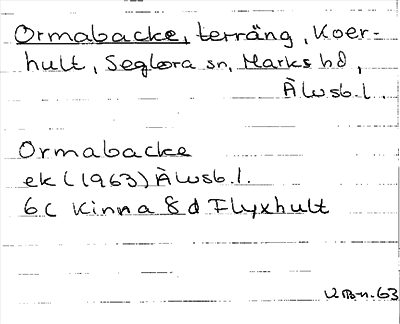 Ormabacke, terräng, Koer-
hult, Seglora sn, Marks hd,
Älvsb.l.
Ormabacke
ek (1963) Älvsb.l.
6C Kinna 8 d Flyxhult
63